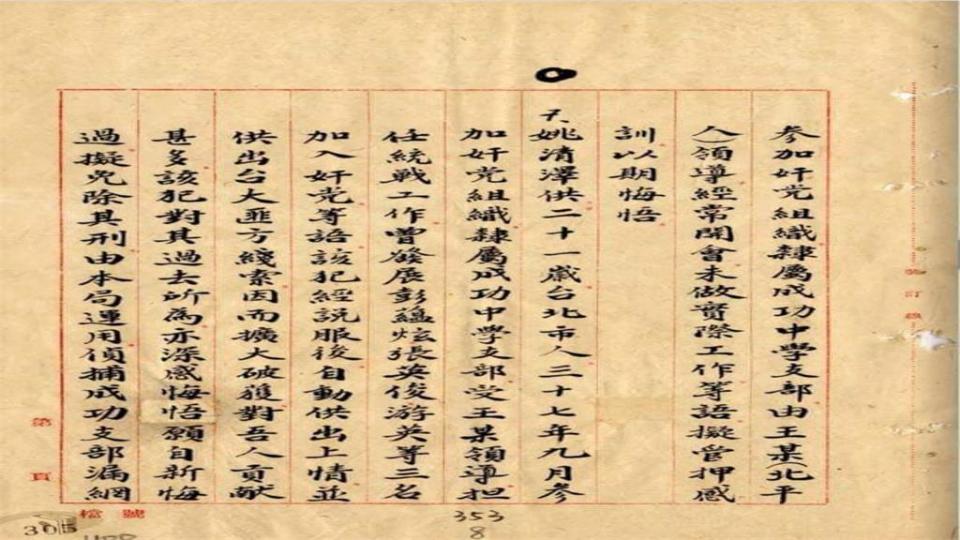 參加奸党組織隸屬成功中學支部由王某(北平
人)領導經常開會未做實際工作等語擬管押感
訓以期悔悟
7.姚清澤供二十一歲台北市人三十七年九月參
加奸党組織隸屬成功中學支部受王某領導担
任統戰工作曾發展彭蘊炫張英俊游英等三名
加入奸党等語該犯經說服後自動供出上情並
供出台大匪方綫索因而擴大破獲對吾人貢献
甚多該犯對其過去所為亦深感悔悟願自新悔
過擬免除其刑由本局運用偵捕成功支部漏網
裝訂線
第 頁
檔號
305
353
8